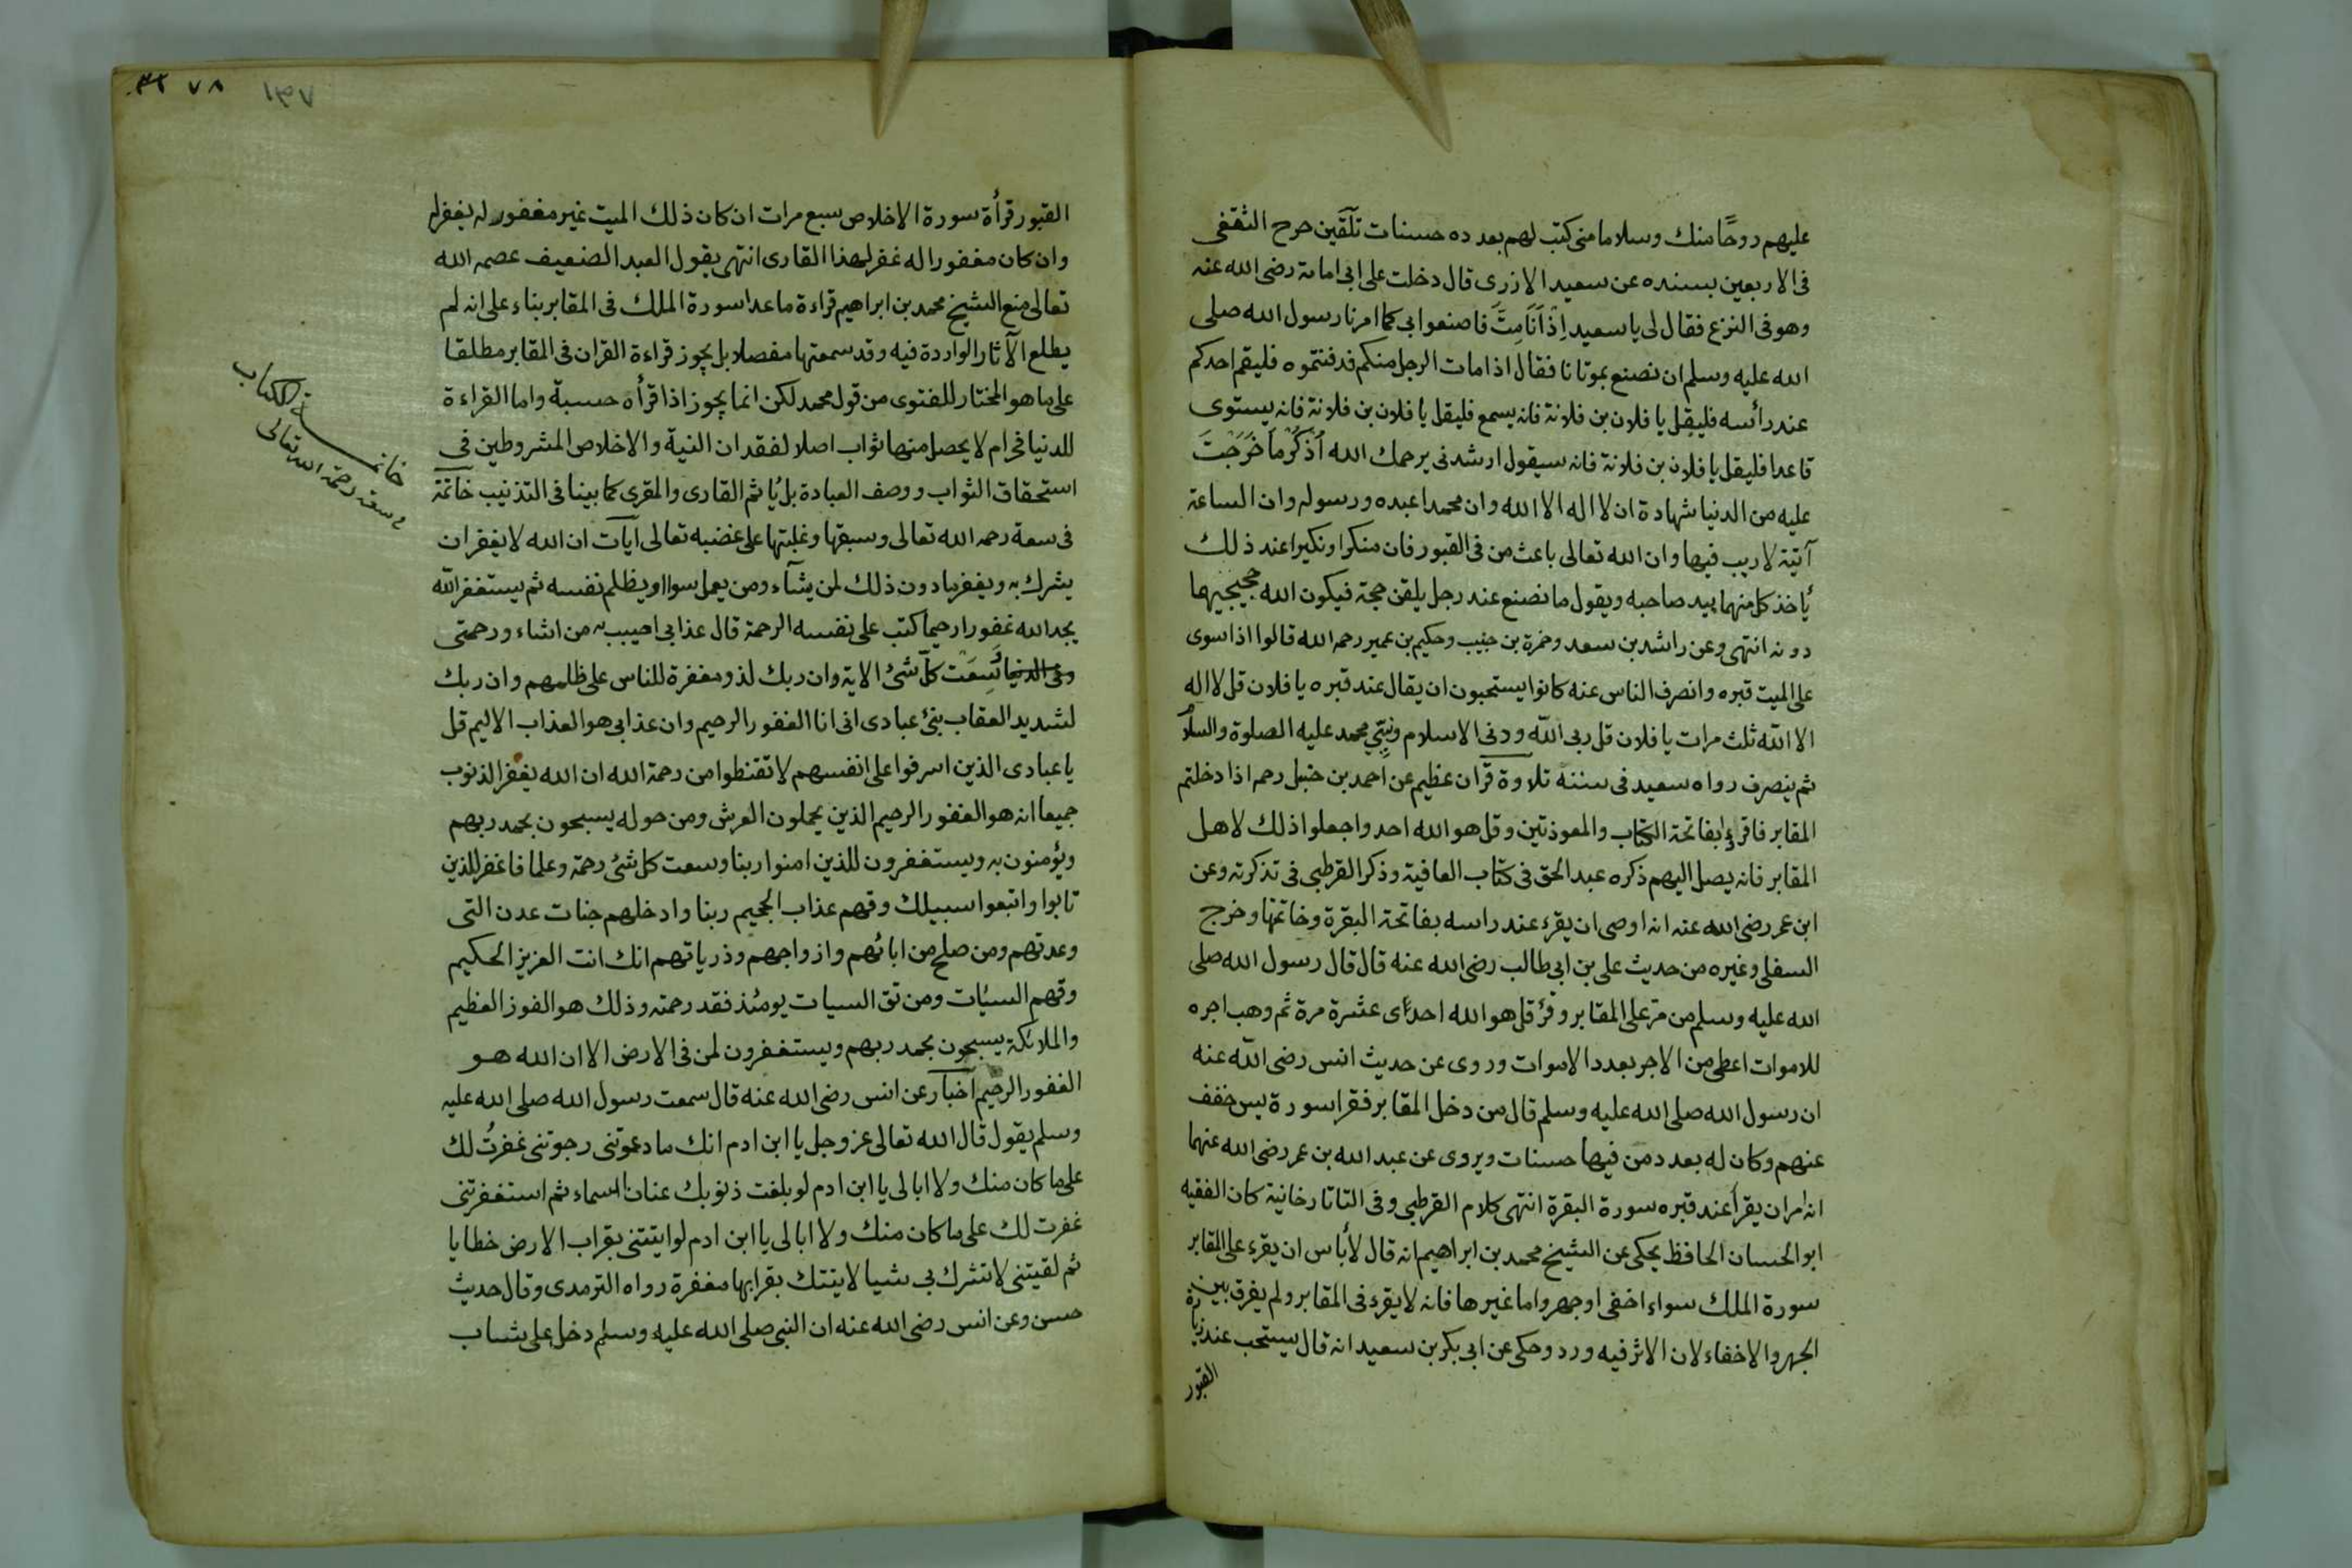 عليهم روحًا منك وسلاما منى كتب لهم بعدده حسنات تلقين خرج الثقفى
فى الاربعين بسنده عن سعيد الازرى قال دخلت على ابى امامة رضى الله عنه
وهو فى النزع فقال لى يا سعيد اِذَا اَنَا مِتُّ فاصنعوا بى كما امرنا رسول الله صلى
الله عليه وسلم ان نصنع بموتانا فقال اذا مات الرجل منكم فدفنتموه فليقم احدكم
عند رأسه فليقل يا فلان بن فلانة فانه يسمع فليقل يا فلان بن فلانة فانه يستوى
قاعدا فليقل يا فلان بن فلانة فانه سيقول ارشدنى يرحمك الله اُذْكُرْ مَا خَرَجْتَ
عليه من الدنيا شهادة ان لا اله الا الله وان محمدا عبده ورسوله وان الساعة
آتية لا ريب فيها وان الله تعالى باعث من فى القبور فان منكرا ونكيرا عند ذلك
يأخذ كل منهما بيد صاحبه ويقول ما نصنع عند رجل يلقن حجة فيكون الله حجيجيهما
دونه انتهى وعن راشد بن سعد وضمرة بن حبيب وحكيم بن عمير رحمه الله قالوا اذا سوى
على الميت قبره وانصرف الناس عنه كانوا يستحبون ان يقال عند قبره يا فلان قل لا اله
الا الله ثلث مرات يا فلان قل ربى الله ودنى الاسلام ونبِيّي محمد عليه الصلوة والسلام
ثم ينصرف رواه سعيد فى سننه تلاوة قرآن عظيم عن احمد بن حنبل رحمه اذا دخلتم
المقابر فاقرؤا بفاتحة الكتاب والمعوذتين وقل هو الله احد واجعلوا ذلك لاهل
المقابر فانه يصل اليهم ذكره عبد الحق فى كتاب العافية وذكر القرطبى فى تذكرته وعن
ابن عمر رضى الله عنه انه اوصى ان يقرء عند راسه بفاتحة البقرة وخاتمتها وخرج
السفلى وغيره من حديث على بن ابى طالب رضى الله عنه قال قال رسول الله صلى
الله عليه وسلم من مرّ على المقابر وقرأ قل هو الله احد اى عشرة مرة ثم وهب اجره
للاموات اعطى من الاجر بعدد الاموات وروى عن حديث انس رضى الله عنه
ان رسول الله صلى الله عليه وسلم قال من دخل المقابر فقرا سورة يس خفف
عنهم وكان له بعدد من فيها حسنات ويروى عن عبد الله بن عمر رضى الله عنهما
انه امر ان يقرأ عند قبره سورة البقرة انتهى كلام القرطبى وفى التاتارخانية كان الفقيه
ابو الحسان الحافظ يحكى عن الشيخ محمد بن ابراهيم انه قال لا بأس ان يقرء على المقابر
سورة الملك سواء اخفى او جهر واما غيرها فانه لا يقرء فى المقابر ولم يفرق بين
الجهر والاخفاء لان الاثر فيه ورد وحكى عن ابى بكر بن سعيد انه قال يستحب عند زيارة
القبور
١٣٧ ٧٨
القبور قرأة سورة الاخلاص سبع مرات ان كان ذلك الميت غير مغفور له يغفر له
وان كان مغفورا له غفر لهذا القارى انتهى يقول العبد الضعيف عصمه الله
تعالى منع الشيخ محمد بن ابراهيم قراءة ما عدا سورة الملك فى المقابر بناء على انه لم
يطلع الآثار الواردة فيه وقد سمعتها مفصلا بل يجوز قراءة القران فى المقابر مطلقا
على ما هو المختار للفتوى من قول محمد لكن انما يجوز اذا قرأه حسبة واما القراءة
للدنيا فحرام لا يحصل منها ثواب اصلا لفقدان النية والاخلاص المشروطين فى
استحقاق الثواب ووصف العبادة بل يأثم القارى والمقرى كما بينا فى التذنيب خاتمة
فى سعة رحمه الله تعالى وسبقها وغلبتها على غضبه تعالى آيات ان الله لا يغفر ان
يشرك به ويغفر ما دون ذلك لمن يشآء ومن يعمل سوا او يظلم نفسه ثم يستغفر الله
يجد الله غفورا رحيما كتب على نفسه الرحمة قال عذابى اصيب به من اشاء ورحمتى
وَسِعَتْ كلّ شئ الاية وان ربك لذو مغفرة للناس على ظلمهم وان ربك
لشديد العقاب نبئ عبادى انى انا الغفور الرحيم وان عذابى هو العذاب الاليم قل
يا عبادى الذين اسرفوا على انفسهم لا تقنطوا من رحمة الله ان الله يغفر الذنوب
جميعا انه هو الغفور الرحيم الذين يحملون العرش ومن حوله يسبحون بحمد ربهم
ويؤمنون به ويستغفرون للذين امنوا ربنا وسعت كل شئ رحمة وعلما فاغفر للذين
تابوا واتبعوا سبيلك وقهم عذاب الجحيم ربنا وادخلهم جنات عدن التى
وعدتهم ومن صلح من ابائهم وازواجهم وذرياتهم انك انت العزيز الحكيم
وقهم السيئات ومن تق السيات يومئذ فقد رحمته وذلك هو الفوز العظيم
والملائكة يسبحون بحمد ربهم ويستغفرون لمن فى الارض الا ان الله هو
الغفور الرحيم اخبار عن انس رضى الله عنه قال سمعت رسول الله صلى الله عليه
وسلم يقول قال الله تعالى عز وجل يا ابن ادم انك ما دعوتنى رجوتنى غفرتُ لك
على ما كان منك ولا ابالى يا ابن ادم لو بلغت ذنوبك عنان السماء ثم استغفرتنى
غفرت لك على ما كان منك ولا ابالى يا ابن ادم لو ايتتنى بقراب الارض خطايا
ثم لقيتنى لا تشرك بى شيا لايتتك بقرابها مغفرة رواه الترمدى وقال حديث
حسن وعن انس رضى الله عنه ان النبى صلى الله عليه وسلم دخل على شاب
خاتمة الكتاب
سعة رحمة الله تعالى